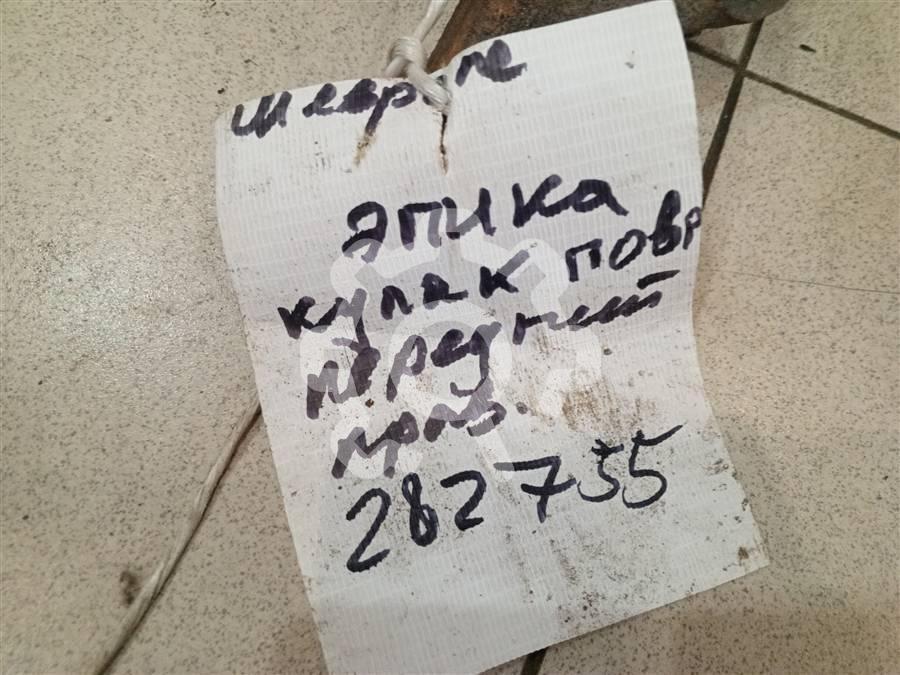 Шевроле
Эпика
кулак повр
передний
прав.
282755